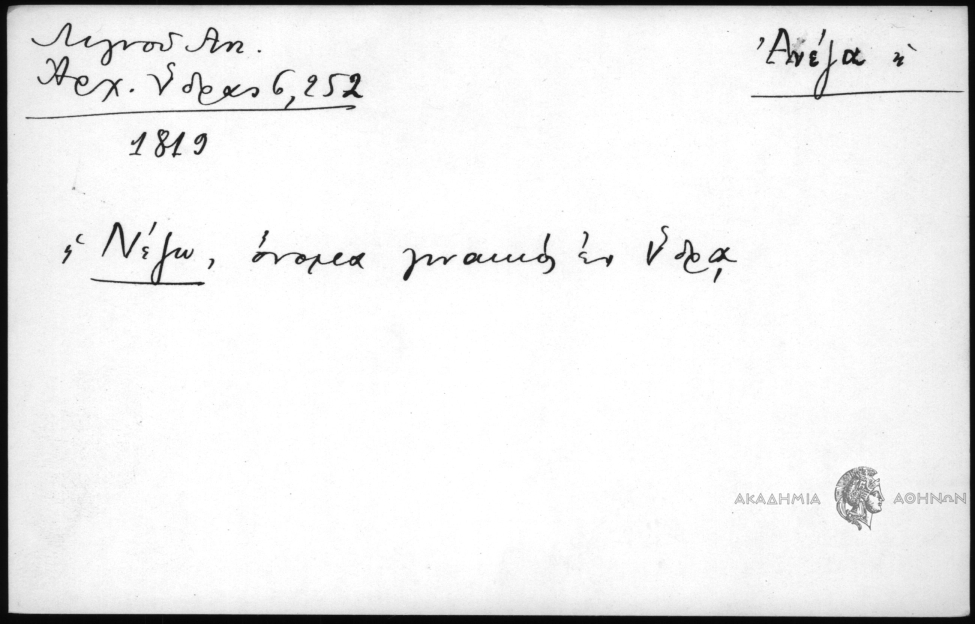 Λιγνοῦ Αντ.
Ἀρχ. Ὕδρας 6, 252
1819
Ἀνέζα ἡ
ἡ Νέζω, ὄνομα γυναικός ἐν Ὕδρᾳ
ΑΚΑΔΗΜΙΑ ΑΘΗΝΩΝ